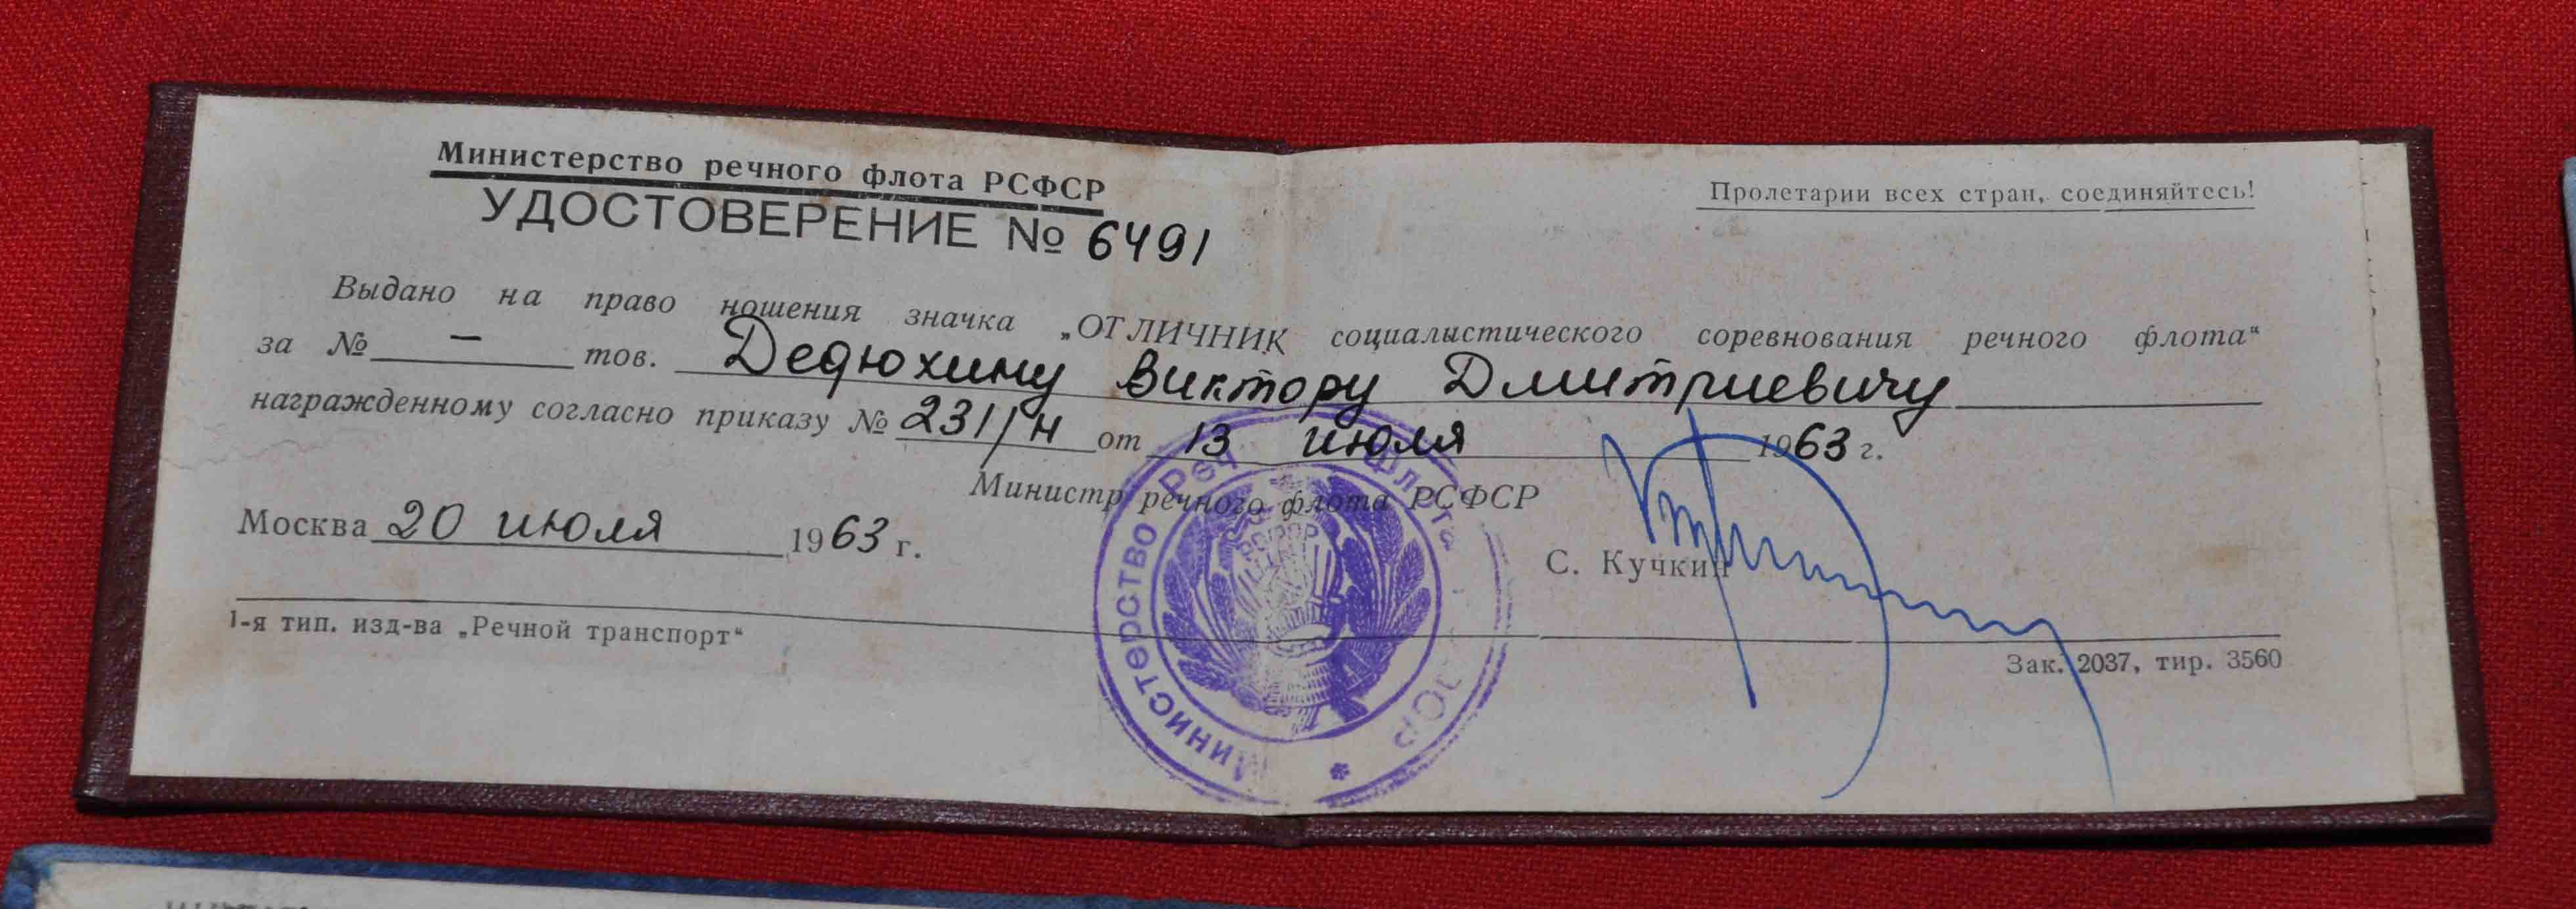 Министерство речного флота РСФСР
УДОСТОВЕРЕНИЕ № 6491
Пролетарии всех стран, соединяйтесь!
Выдано на право ношения значка „ОТЛИЧНИК социалистического соревнования речного флота“
за № — тов. Дедюхину Виктору Дмитриевичу
награжденному согласно приказу № 231/н от 13 июля 1963 г.
Министр речного флота РСФСР
Москва 20 июля 1963 г.
С. Кучкин
1-я тип. изд-ва „Речной транспорт“
Зак. 2037, тир. 3560
Министерство Реч флота РСФСР *